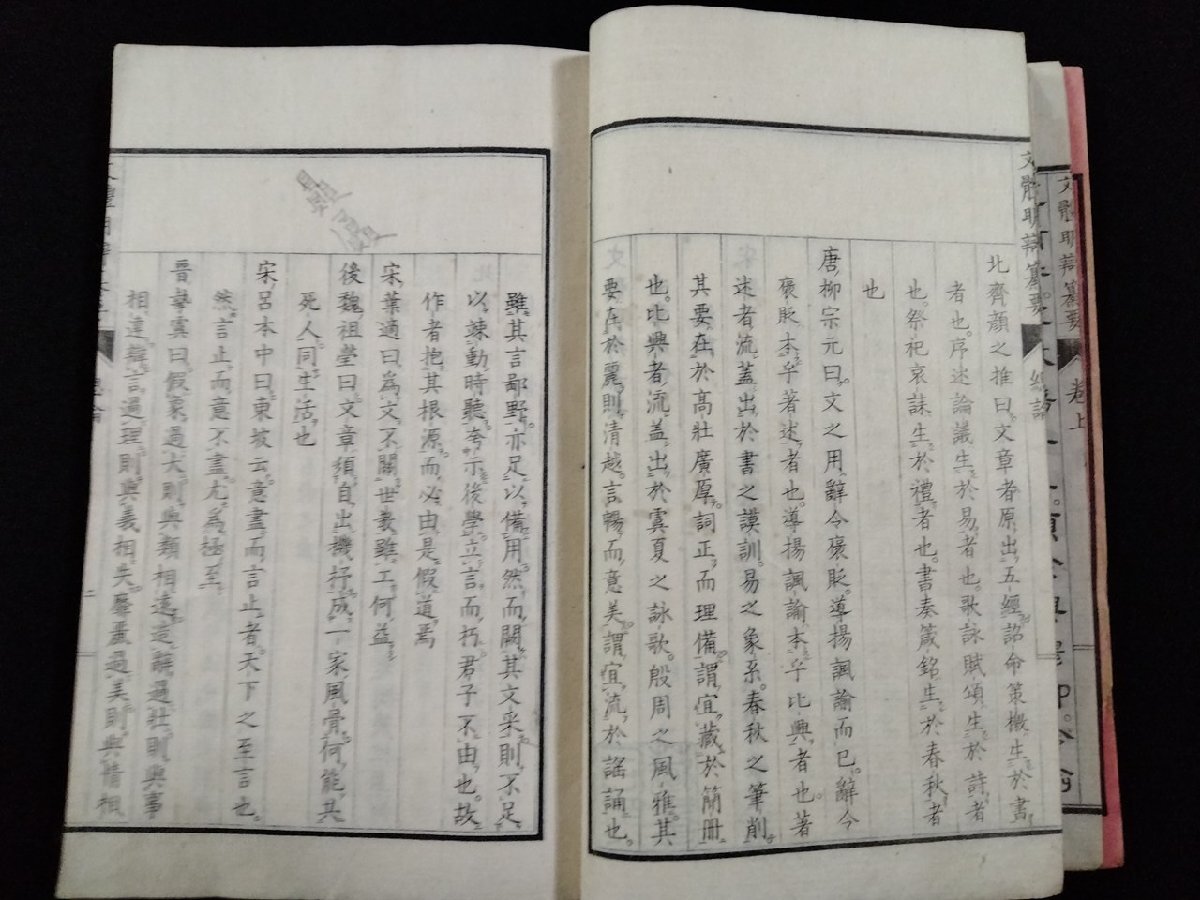 文體明辯纂要 卷上
文體明辯纂要 總論
北齊顏之推曰文章者原出五經詔命策檄生於書
者也序述論議生於易者也歌詠賦頌生於詩者
也祭祀哀誄生於禮者也書奏箴銘生於春秋者
也
唐柳宗元曰文之用辭令褒貶導揚諷諭而已辭令
褒貶本乎著述者也導揚諷諭本乎比興者也著
述者流蓋出於書之謨訓易之象系春秋之筆削
其要在於高壯廣厚詞正而理備謂宜藏於簡冊
也比興者流蓋出於虞夏之詠歌殷周之風雅其
要在於麗則清越言暢而意美謂宜流於謠誦也
雖其言鄙野亦足以備用然而闕其文采則不足
以竦動時聽夸示後學立言而朽君子不由也故
作者抱其根源而必由是假道焉
宋葉適曰爲文不關世敎雖工何益
後魏祖瑩曰文章須自出機杼成一家風骨何能共
死人同生活也
宋呂本中曰東坡云意盡而言止者天下之至言也
然言止而意不盡尤爲極至
晉摯虞曰假象過大則與類相遠造辭過壯則與事
相違辯言過理則與義相失靡麗過美則與情相